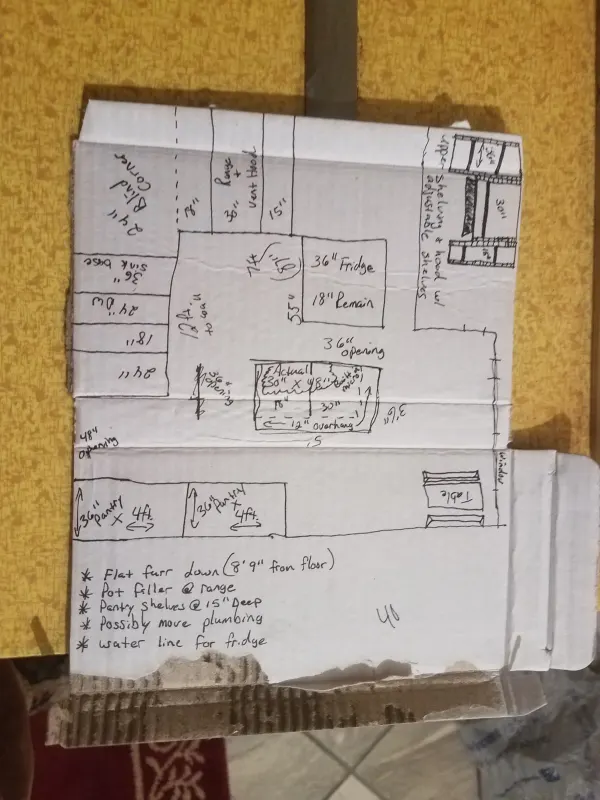 24" Blind
Corner
36"
sink base
24" DW
18"
24"
36" Range
+
vent Hood
15"
7ft.
55"
36" Fridge
18" Remain
12 ft.
to wall
36"
opening
upper shelving & hood w/
adjustable shelves
30"
opening
Actual
30" x 48"
18"
30"
12" overhang
3'6"
5'
48"
opening
window
36"
Pantry
x
4ft.
36"
Pantry
x
4ft.
Table
* Flat furr down (8'9" from floor)
* Pot filler @ range
* Pantry shelves @ 15" Deep
* Possibly move plumbing
* water line for fridge